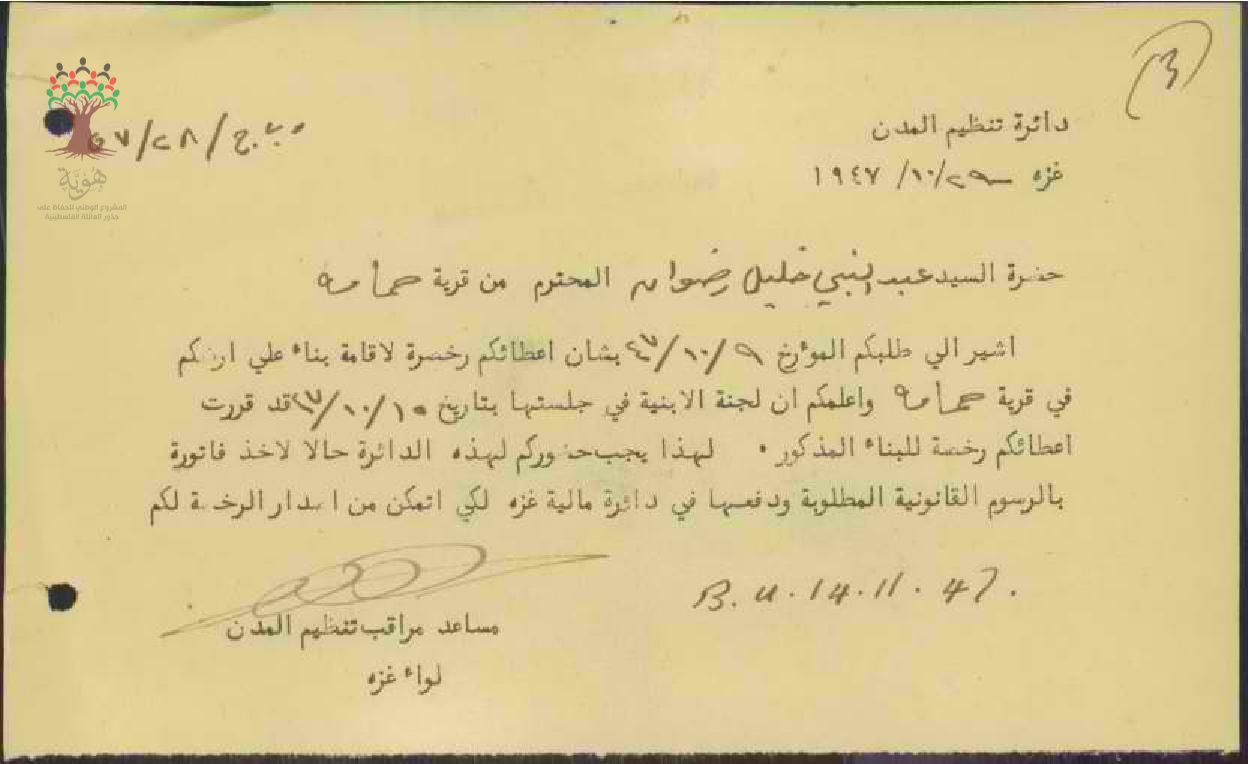 (3)
دائرة تنظيم المدن
غزه ٢٩/١٠/١٩٤٧
ب.ج/٢٨/٥٧
هوية
المشروع الوطني للحفاظ على
جذور العائلة الفلسطينية
حضرة السيد عبد النبي خليل رضوان المحترم من قرية حمامه
اشير الي طلبكم الموءرخ ٩/١٠/٤٧ بشان اعطائكم رخصة لاقامة بناء علي ارضكم
في قرية حمامه واعلمكم ان لجنة الابنية في جلستها بتاريخ ١٥/١٠/٤٧ قد قررت
اعطائكم رخصة للبناء المذكور . لهذا يجب حضوركم لهذه الدائرة حالا لاخذ فاتورة
بالرسوم القانونية المطلوبة ودفعها في دائرة مالية غزه لكي اتمكن من اصدار الرخصة لكم
B.U. 14.11.47.
مساعد مراقب تنظيم المدن
لواء غزه